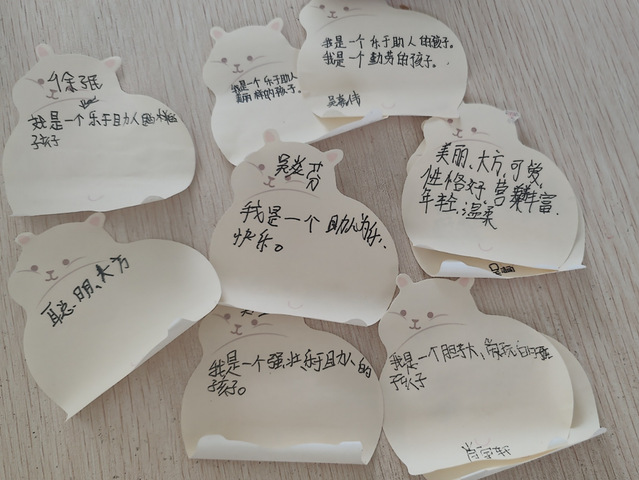 我是一个乐于助人
的孩子。
我是一个乐于助人的孩子。
我是一个勤劳的孩子。
是一个乐于助人的
孩子
美丽、大方、可爱、
性格好、营养丰富、
年轻、温柔
我是一个助人为乐、
快乐。
聪明、大方
我是一个强壮、乐于助人的
孩子。
我是一个胆大、
孩子